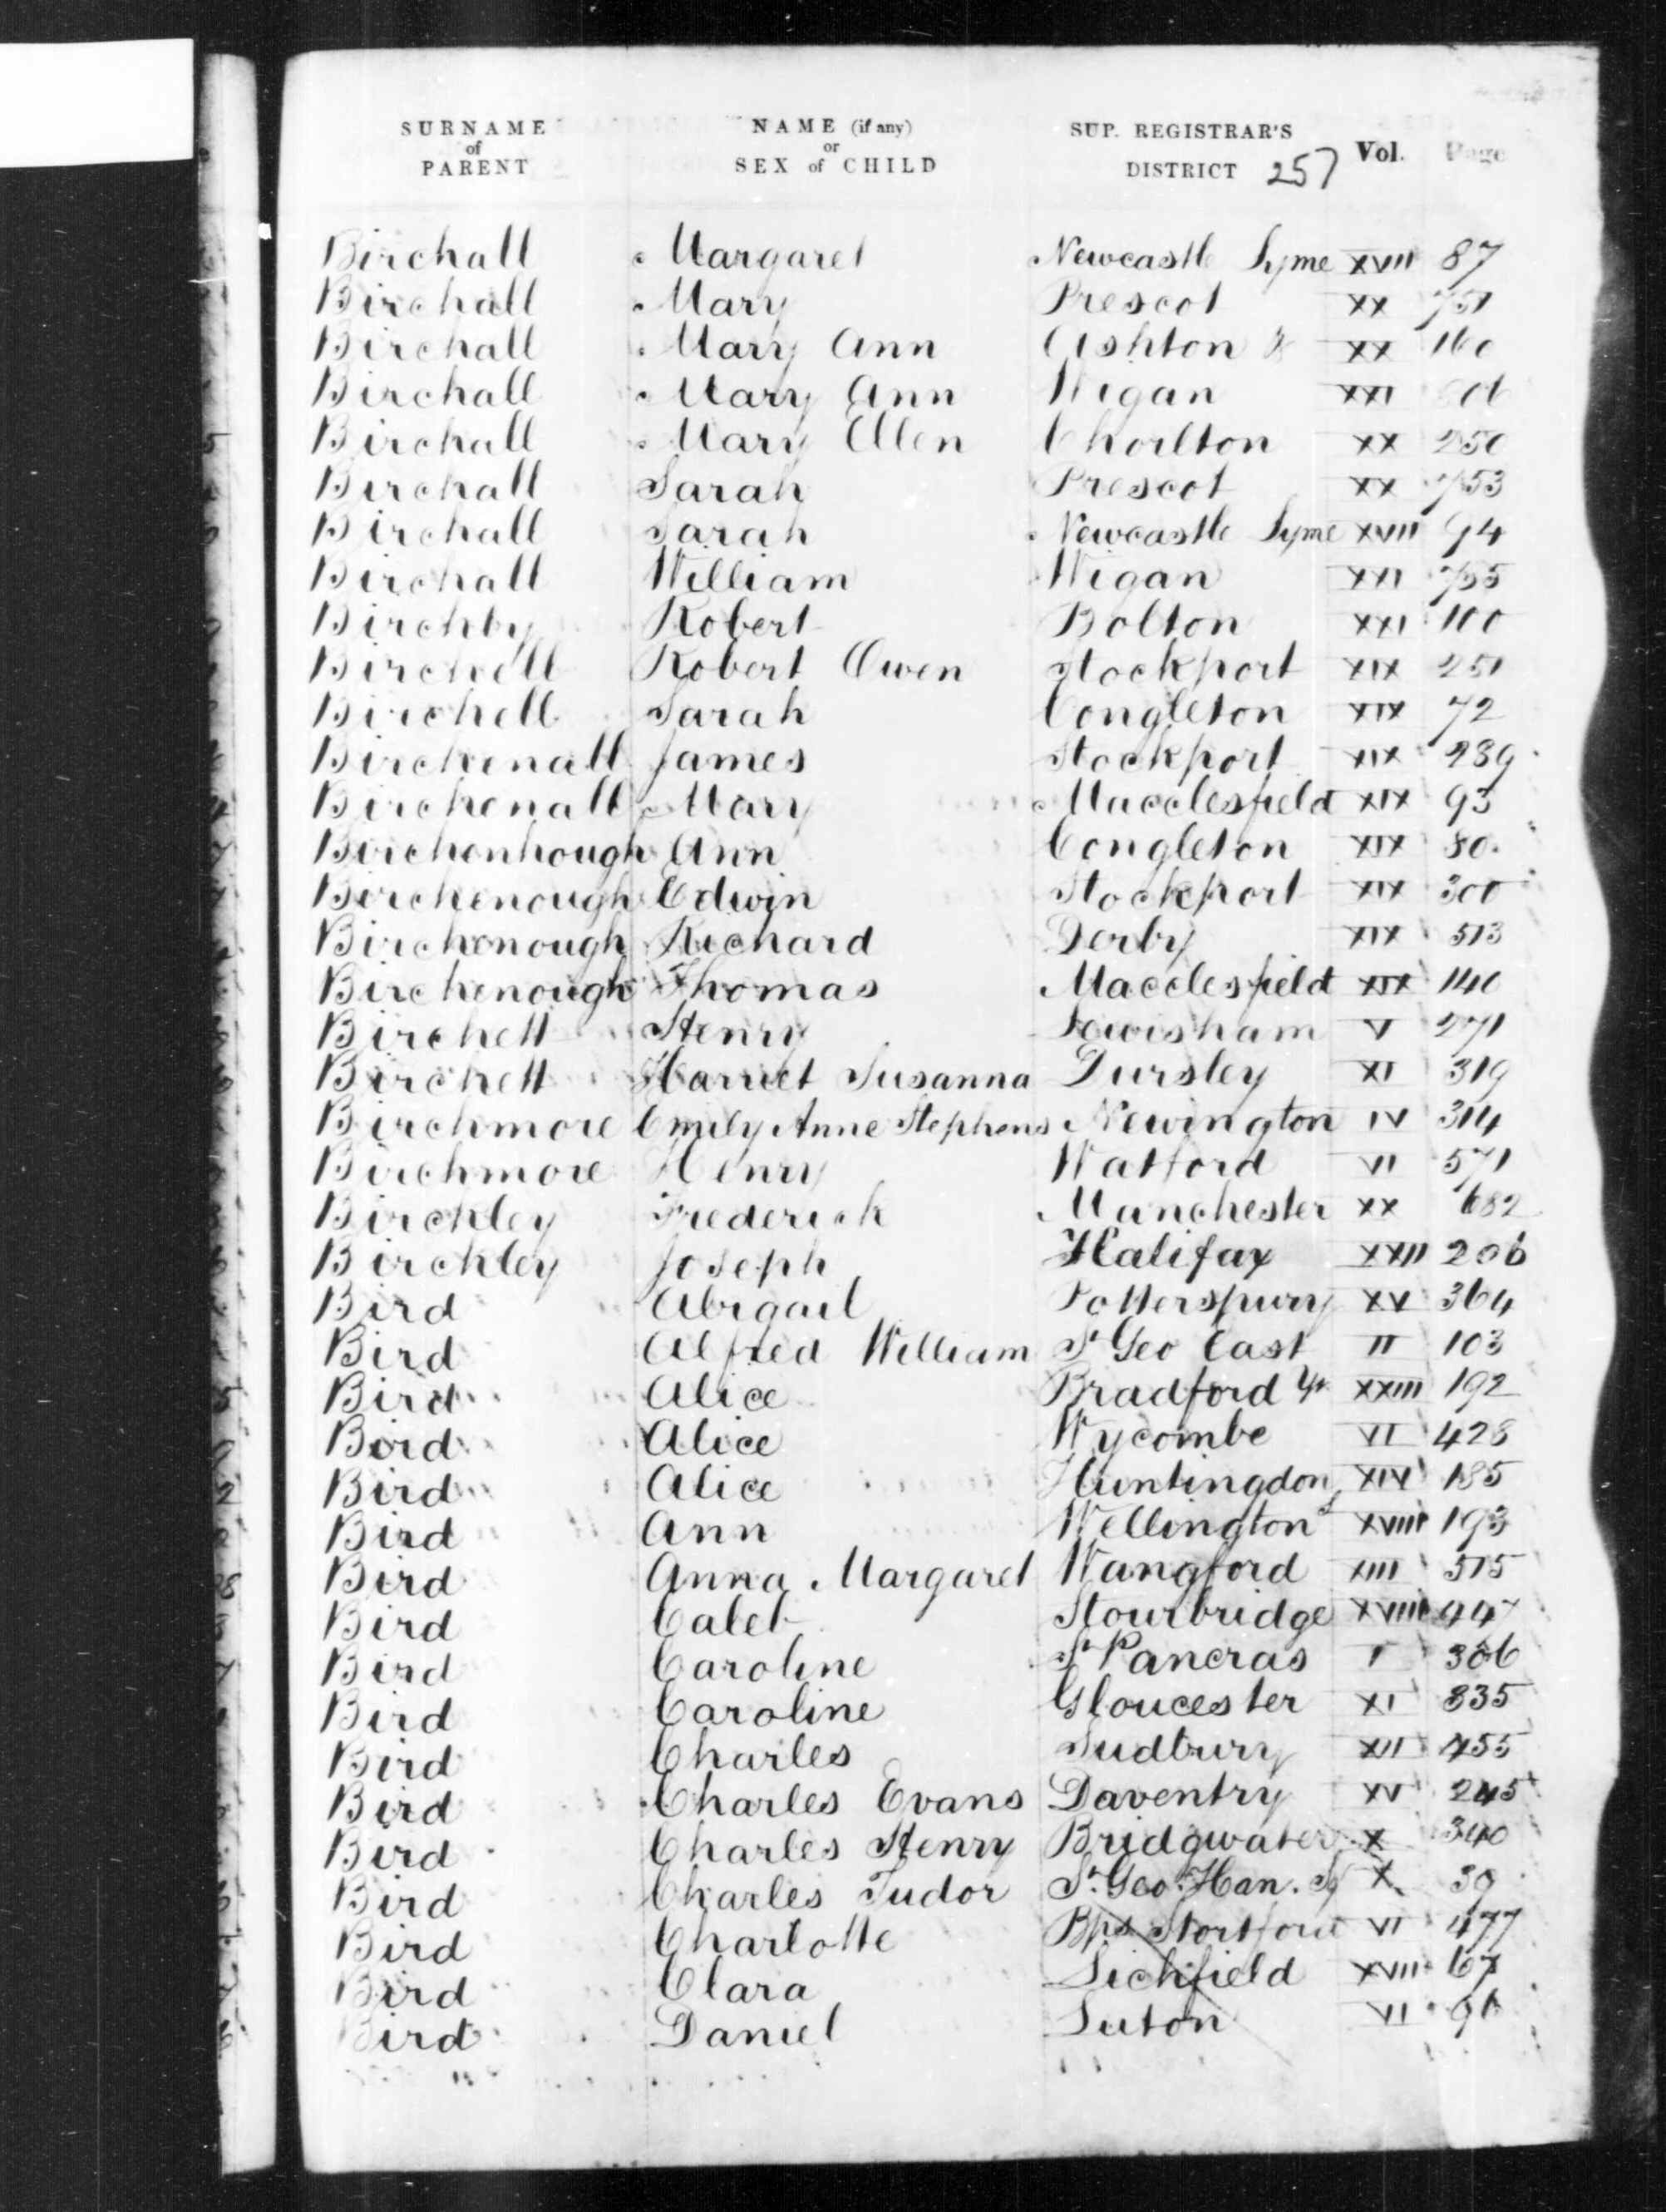 SURNAME of PARENT NAME (if any) or SEX of CHILD SUP. REGISTRAR'S DISTRICT 257 Vol. Page
Birchall Margaret Newcastle Lyme XVII 87
Birchall Mary Prescot XX 751
Birchall Mary Ann Ashton XX 160
Birchall Mary Ann Wigan XXI
Birchall Mary Ellen Chorlton XX 250
Birchall Sarah Prescot XX 753
Birchall Sarah Newcastle Lyme XVII 94
Birchall William Wigan XXI 755
Birchby Robert Bolton XXI 100
Birchell Robert Owen Stockport XIX 251
Birchell Sarah Congleton XIX 72
Birchenall James Stockport XIX 239
Birchenall Mary Macclesfield XIX 93
Birchenhough Ann Congleton XIX 80
Birchenough Edwin Stockport XIX 300
Birchenough Richard Derby XIX 513
Birchenough Thomas Macclesfield XIX 140
Birchett Henry Lewisham V 271
Birchett Harriet Susanna Dursley XI 319
Birchmore Emily Anne Stephens Newington IV 314
Birchmore Henry Watford VI 571
Birchley Frederick Manchester XX 682
Birchley Joseph Halifax XXII 206
Bird Abigail Potterspury XV 364
Bird Alfred William St Geo East II 103
Bird Alice Bradford Yk XXIII 192
Bird Alice Wycombe VI 428
Bird Alice Huntingdon XIV 185
Bird Ann Wellington S XVIII 193
Bird Anna Margaret Wangford XIII 515
Bird Caleb Stourbridge XVIII 447
Bird Caroline St Pancras I 306
Bird Caroline Gloucester XI 335
Bird Charles Sudbury XII 455
Bird Charles Evans Daventry XV 245
Bird Charles Henry Bridgwater X 340
Bird Charles Tudor St. Geo. Han. Sq X 39
Bird Charlotte Bps Stortford VI 477
Bird Clara Lichfield XVII 67
Bird Daniel Luton VI